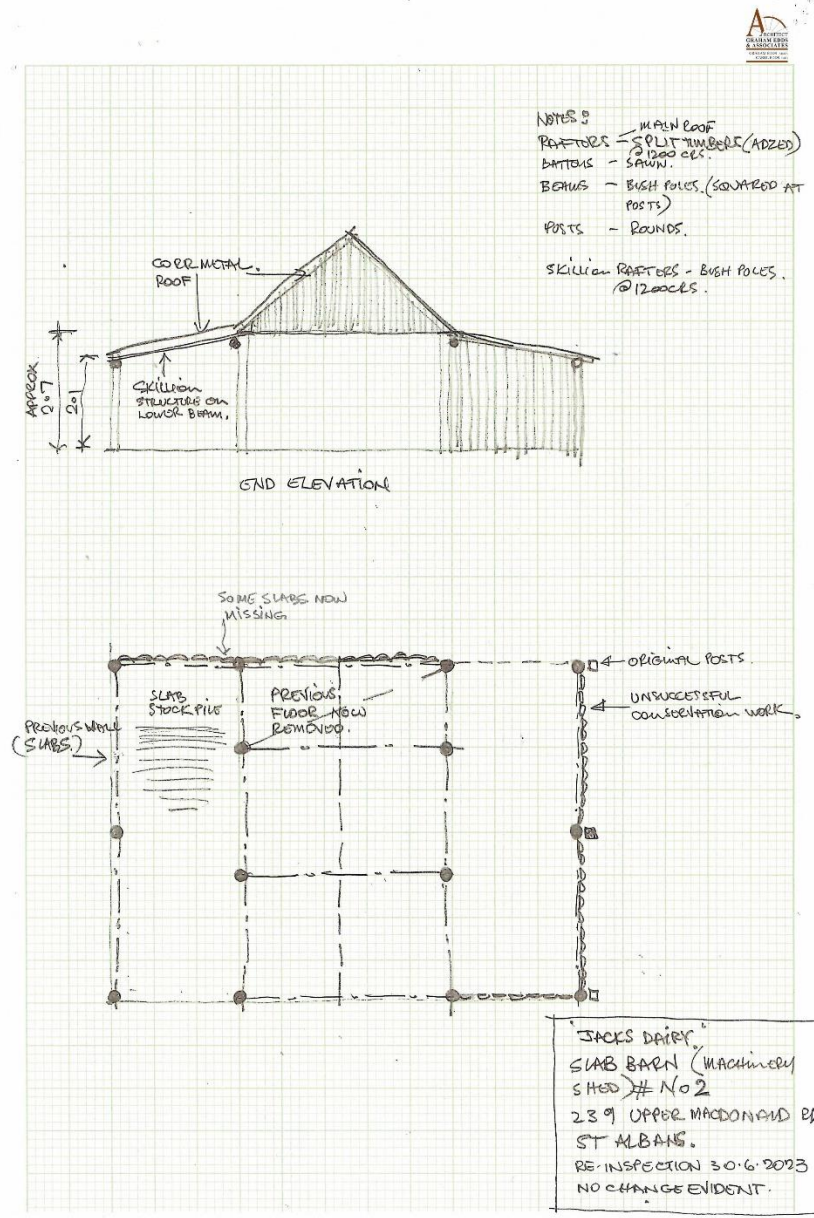 ARCHITECT
GRAHAM EDDS
& ASSOCIATES
NOTES:
MAIN ROOF
RAFTERS - SPLIT TIMBERS (ADZED)
@ 1200 CRS.
BATTENS - SAWN.
BEAMS - BUSH POLES. (SQUARED AT
POSTS)
POSTS - ROUNDS.
SKILLION RAFTERS - BUSH POLES.
@ 1200 CRS.
CORR METAL.
ROOF
APPROX
2.7
2.1
SKILLION
STRUCTURE ON
LOWER BEAM.
END ELEVATION
SOME SLABS NOW
MISSING
ORIGINAL POSTS.
SLAB
STOCKPILE
PREVIOUS
FLOOR NOW
REMOVED.
UNSUCCESSFUL
CONSERVATION WORK.
PREVIOUS WALL
(SLABS.)
"JACKS DAIRY."
SLAB BARN (MACHINERY
SHED) # No 2
239 UPPER MACDONALD RD
ST ALBANS.
RE-INSPECTION 30.6.2023
NO CHANGE EVIDENT.